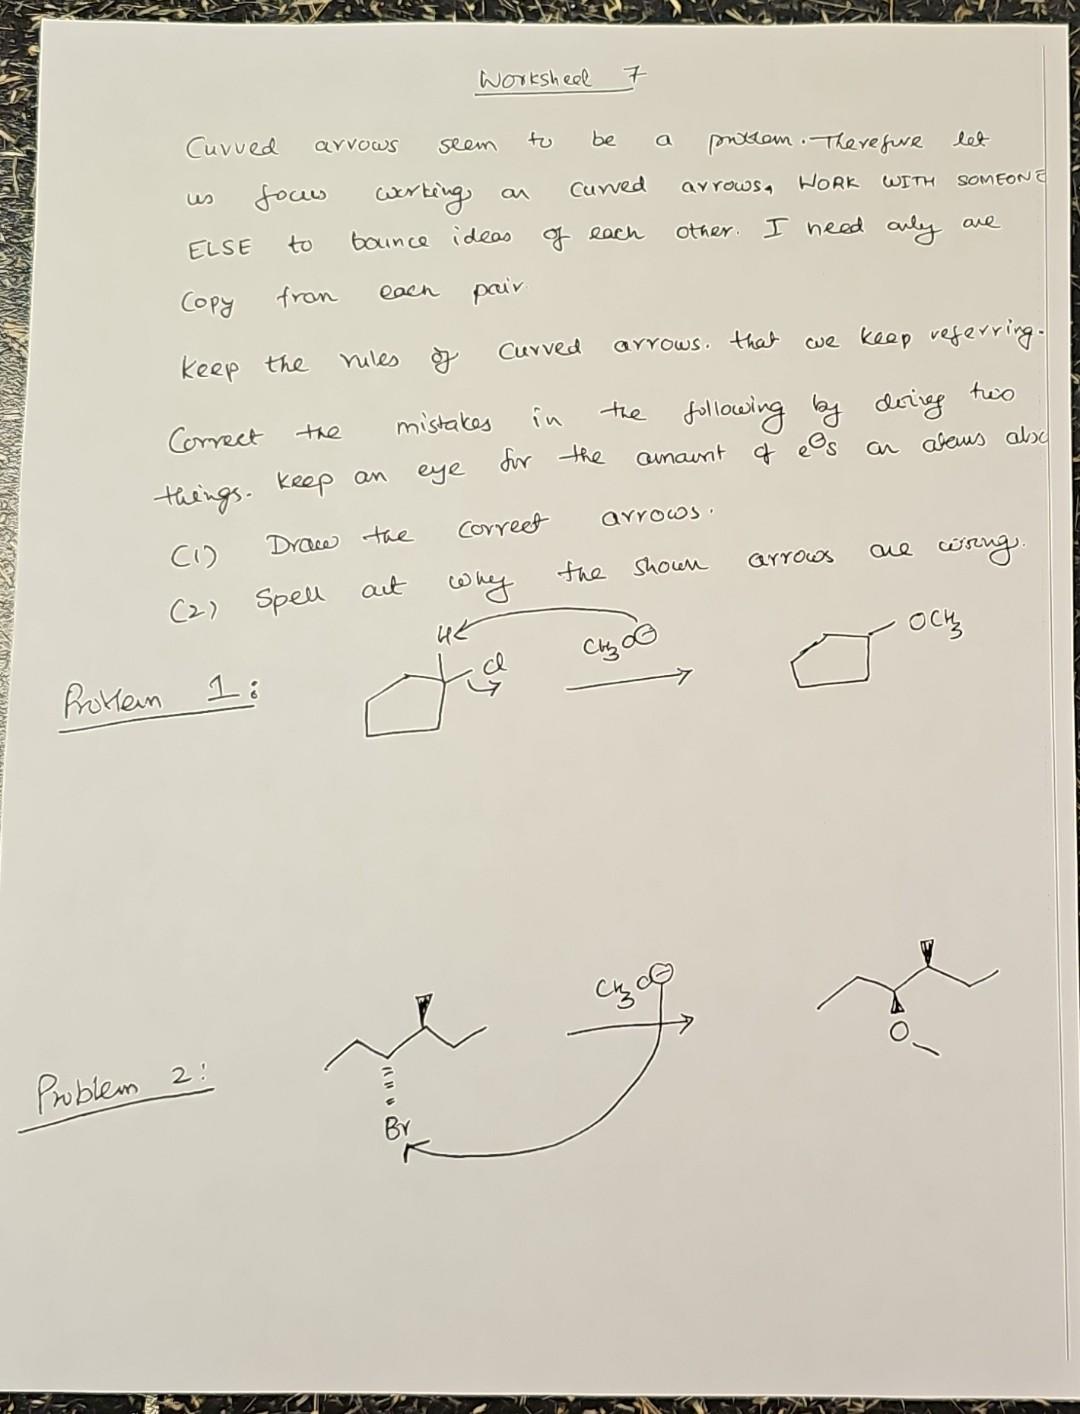 Worksheet 7
Curved arrows seem to be a problem. Therefore let
us focus working on curved arrows, WORK WITH SOMEONE
ELSE to bounce ideas of each other. I need only one
Copy from each pair.
Keep the rules of curved arrows. that we keep referring.
Correct the mistakes in the following by doing two
things. Keep an eye for the amount of e⊖s on atoms also
(1) Draw the correct arrows.
(2) Spell out why the shown arrows are wrong.
Problem 1:
H
Cl
CH3O⊖
OCH3
Problem 2:
Br
CH3O⊖
O